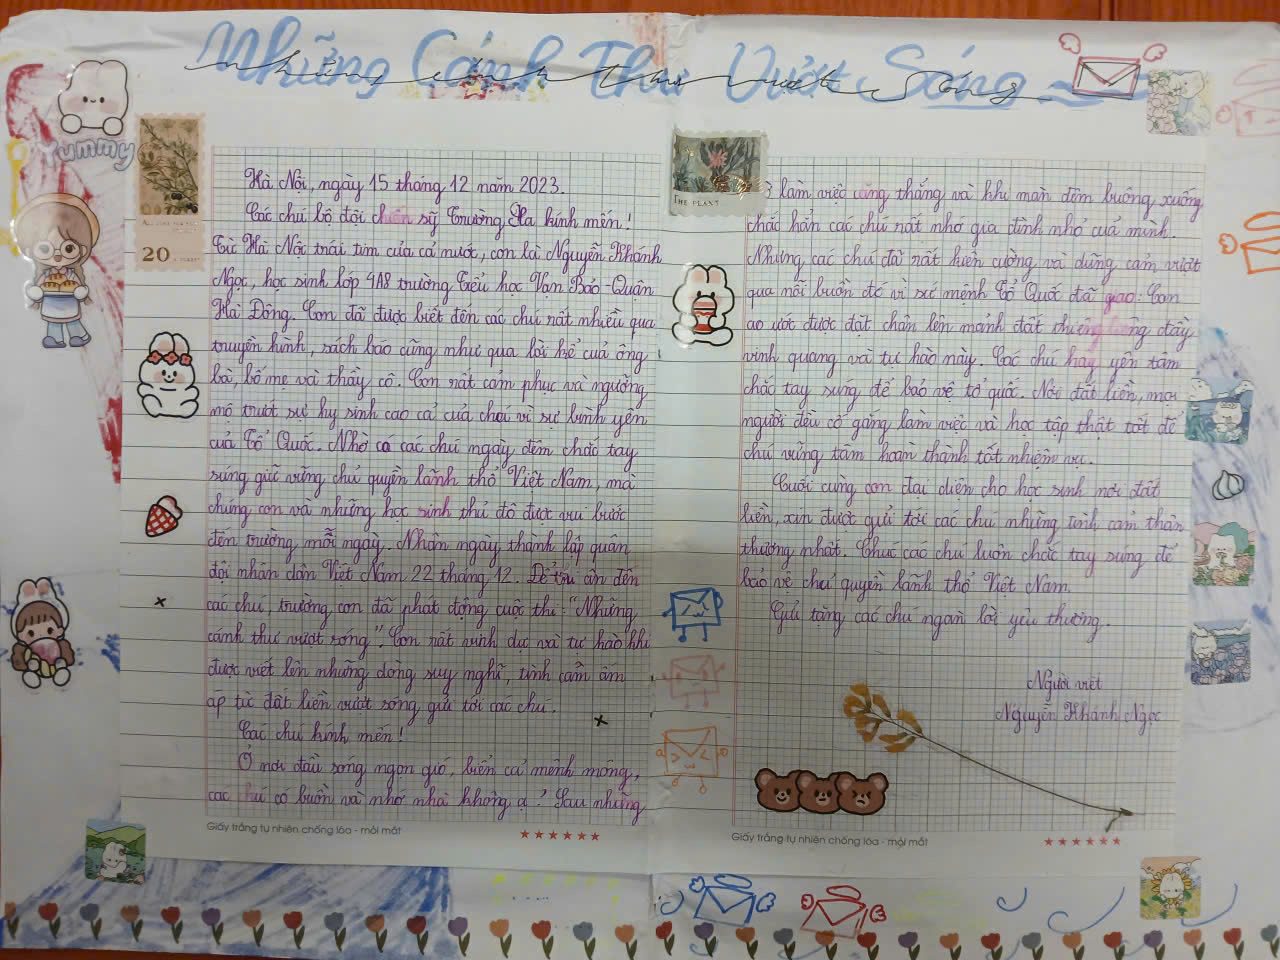 Những Cánh Thư Vượt Sóng
Yummy
20
THE PLANT
Hà Nội, ngày 15 tháng 12 năm 2023.
Các chú bộ đội chiến sỹ Trường Sa kính mến!
Từ Hà Nội trái tim của cả nước, con là Nguyễn Khánh
Ngọc, học sinh lớp 4A8 trường Tiểu học Vạn Bảo - Quận
Hà Đông. Con đã được biết đến các chú rất nhiều qua
truyền hình, sách báo cũng như qua lời kể của ông
bà, bố mẹ và thầy cô. Con rất cảm phục và ngưỡng
mộ trướt sự hy sinh cao cả của chú vì sự bình yên
của Tổ Quốc. Nhờ có các chú ngày đêm chắc tay
súng giữ vững chủ quyền lãnh thổ Việt Nam, mà
chúng con và những học sinh thủ đô được vui bước
đến trường mỗi ngày. Nhân ngày thành lập quân
đội nhân dân Việt Nam 22 tháng 12. Để tri ân đến
các chú, trường con đã phát động cuộc thi: "Những
cánh thư vượt sóng". Con rất vinh dự và tự hào khi
được viết lên những dòng suy nghĩ, tình cảm ấm
áp từ đất liền vượt sóng gửi tới các chú.
Các chú kính mến!
Ở nơi đầu sóng ngọn gió, biển cả mênh mông,
các chú có buồn và nhớ nhà không ạ? Sau những
Giấy trắng tự nhiên chống lóa - mỏi mắt
làm việc căng thẳng và khi màn đêm buông xuống
chắc hẳn các chú rất nhớ gia đình nhỏ của mình.
Nhưng các chú đã rất kiên cường và dũng cảm vượt
qua nỗi buồn đó vì sứ mệnh Tổ Quốc đã giao. Con
ao ước được đặt chân lên mảnh đất thiêng liêng đầy
vinh quang và tự hào này. Các chú hãy yên tâm
chắc tay súng để bảo vệ tổ quốc. Nơi đất liền, mọi
người đều cố gắng làm việc và học tập thật tốt để
chú vững tâm hoàn thành tốt nhiệm vụ.
Cuối cùng con đại diện cho học sinh nơi đất
liền, xin được gửi tới các chú những tình cảm thân
thương nhất. Chúc các chú luôn chắc tay súng để
bảo vệ chủ quyền lãnh thổ Việt Nam.
Gửi tặng các chú ngàn lời yêu thương.
Người viết
Nguyễn Khánh Ngọc
Giấy trắng tự nhiên chống lóa - mỏi mắt